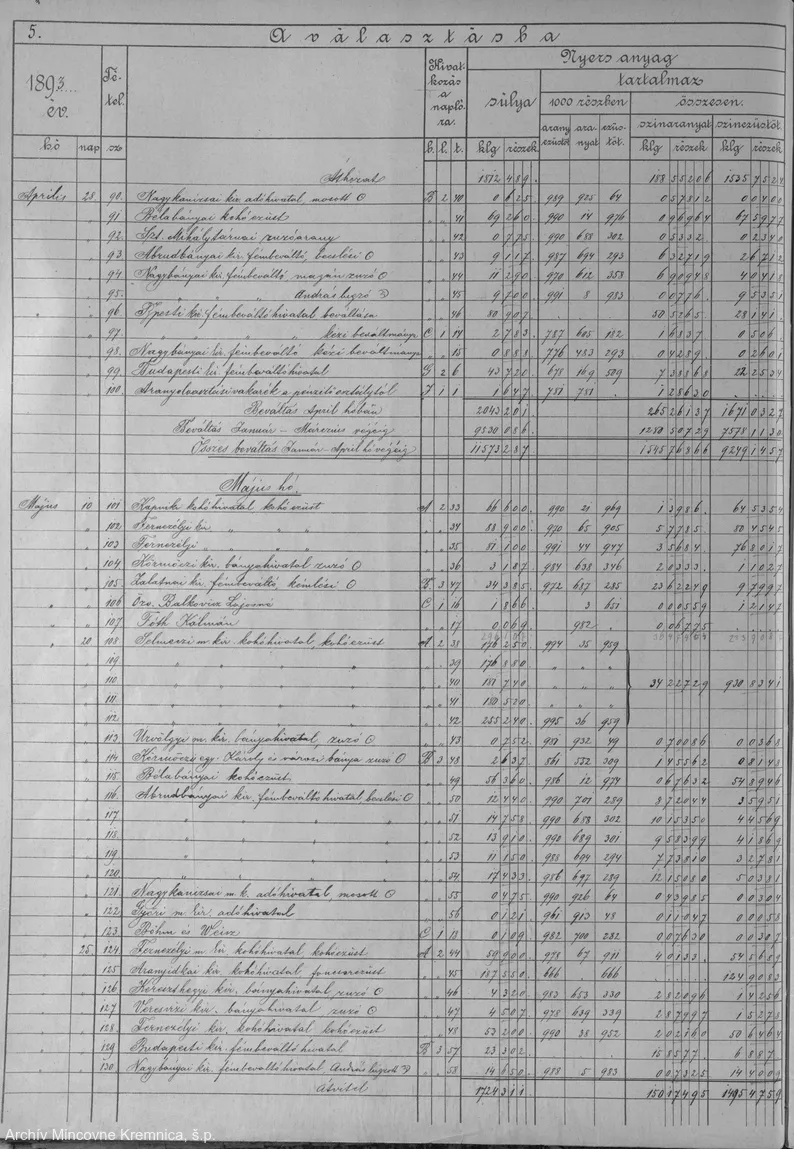 5. A választásba
1893. év.
Tételsz
Hivatkozás a naplóra.
Nyers anyag
súlya
tartalmaz
1000 részben
összesen.
arany ezüstöt
aranyat
ezüstöt.
színaranyat
színezüstöt.
hó nap sz b. l. t. klg részek. klg részek klg részek
Áthozat 1812 489. 188 55206 1535 7524
Április 28. 90. Nagykanizsai kir. adóhivatal, mosott 0 B 2 40 0 625 989 925 64 0 5782 0 0400
91. Bélabányai kohóezüst 41 69 260 990 14 976 0 96964 67 5977
92. Szt. Mihálytárnai zuzóarany 42 0 775 990 688 302 0 5332 0 2340
93. Abrudbányai kir. fémbeváltó, beeslési 0 43 9 117 987 694 293 6 32719 2 6712
94. Nagybányai kir. fémbeváltó magán zuzó 0 44 11 290 970 612 358 6 90948 4 0418
95. András lugzó 45 9 700 991 8 983 0 0776 9 5351
96. Bpesti kir. fémbeváltó hivatal beváltása 46 80 907 50 5265 28 141
97. kézi beváltmánya C 1 14 2 783 787 605 182 1 6837 0 506
98. Nagybányai kir. fémbeváltó kézi beváltmánya 15 0 888 776 483 293 0 4289 0 2601
99. Budapesti kir. fémbeváltó hivatal G 2 6 43 720 678 169 509 7 38868 22 2534
100 1 1 1 647 781 781 1 28630
Beváltás April hóban 2043 201 265 26137 1671 0327
Beváltás Január - Márczius végéig 9530 086 1280 50729 7578 1130
Összes beváltás Január-April hó végéig 11573 287 1545 76866 9249 1457
Május hó.
Május 10 101 Kapniki kohóhivatal kohóezüst A 2 33 66 600 990 21 969 1 3986 64 5354
102 Fernezelyi kir. 34 88 900 970 65 905 5 7785 80 4545
103 Fernezelyi 35 81 100 991 44 947 3 5684 76 8017
104 Körmöczi kir. bányahivatal zuzó 0 36 3 187 984 638 346 2 0333 1 1027
105 Zalatnai kir. fémbeváltó kémlési 0 B 3 47 34 385 972 687 285 23 6 2249 9 7997
106 Özv. Balkovics Lajosné C 1 16 1 866 3 651 0 00559 1 2147
107 Tóth Kálmán 17 0 069 982 0 06775
20 108 Selmeczi m. kir. kohóhivatal, kohóezüst A 2 38 176 250 994 35 959
109 39 176 880
110 40 181 740 34 22729 930 8341
111 41 180 520
112 42 255 240 995 36 959
113 Úrvölgyi m. kir. bányahivatal, zuzó 0 43 0 752 981 932 49 0 70086 0 0368
114 Körmöczi egy. Károly és városi bánya zuzó 0 B 3 48 2 637 861 552 309 1 45562 0 8148
115 Bélabányai kohóezüst 49 56 360 986 12 974 0 67632 54 8946
116 Abrudbányai kir. fémbeváltó hivatal beeslési 0 50 12 440 990 701 289 8 72044 3 5951
117 51 14 758 990 688 302 10 15350 4 4569
118 52 13 910 990 689 301 9 58399 4 1869
119 53 11 150 988 694 294 7 73810 3 2781
120 54 17 433 986 697 289 12 15080 5 0381
121 Nagykanizsai m. k. adóhivatal, mosott 0 55 0 475 990 926 64 0 43985 0 0304
122 Győri m. kir. adóhivatal 56 0 121 961 913 48 0 11047 0 0058
123 Böhm és Weisz C 1 18 0 109 982 700 282 0 07630 0 0307
25 124 Fernezelyi m. kir. kohóhivatal kohóezüst A 2 44 59 900 978 67 911 4 0133 54 5689
125 Aranyidkai kir. kohóhivatal foncsorezüst 45 187 550 666 666 124 9083
126 Kereszthegyi kir. bányahivatal, zuzó 0 46 4 320 983 653 330 2 82096 1 4256
127 Veresvizi kir. bányahivatal zuzó 0 47 4 507 978 639 339 2 87997 1 5278
128 Fernezelyi kir. kohóhivatal kohóezüst 48 53 200 990 38 952 2 02160 50 6464
129 Budapesti kir. fémbeváltó hivatal B 3 57 23 302 15 8577 6 887
130 Nagybányai kir. fémbeváltó hivatal, András lugzott 58 14 650 988 5 983 0 07325 14 4009
Átvitel 1724 311 150 17495 1495 4759
Archív Mincovne Kremnica, š.p.